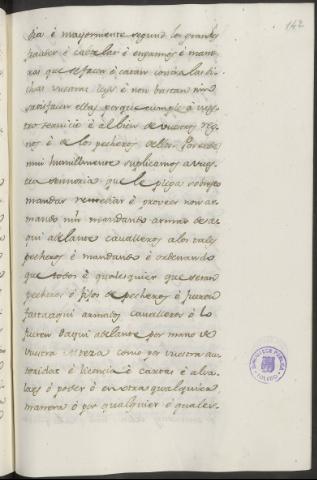 142
dia é mayormente segund los grandes
fraudes é cautelas é engannos é mane
ras que se facen é catan contra las di
chas vuestras leys é non bastan nin
satisfacen ellas porque cumple á vues
tro servicio é al bien de vuestros reg
nos é de los pecheros dellos. Por ende
mui humillmente suplicamos a vues
tra sennoria que le plega sobresto
mandar remediar é proveer non ar
mando nin mandando armar de a
qui adelante cavalleros a los tales
pecheros é mandando é ordenando
que todos é qualesquier que seran
pecheros ó fijos de pecheros é fueron
fasta aqui armados cavalleros ó lo
fueren daqui adelante por mano de
vuestra Alteza como por vuestra au
toridat é licencia é cartas é alva
laes ó poder ó en otra qualquiera
manera ó por qualquier ó quales-
BIBLIOTECA PUBLICA
TOLEDO